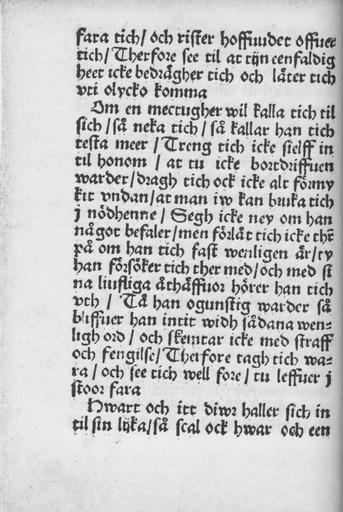 fara tich/ och rister hoffwudet offuer
tich/ Therfore see til at tijn eenfaldig
heet icke bedrägher tich och låter tich
vti olycko komma
Om en mectugher wil kalla tich til
sich/ så neka tich/ så kallar han tich
testa meer/ Treng tich icke sielff in
til honom/ at tu icke bortdriffuen
warder/ dragh tich ock icke alt formy
kit vndan/ at man iw kan bruka tich
j nödhenne/ Segh icke ney om han
något befaler/ men förlåt tich icke ther
på om han tich fast wenligen är/ ty
han försöker tich ther med/ och med si
na liuffliga åthäffuor hörer han tich
vth/ Tå han ogunstig warder så
bliffuer han intit widh sådana wen-
ligh ord/ och skemtar icke med straff
och fengilse/ Therfore tagh tich wa-
ra/ och see tich well fore/ tu leffuer j
stoor fara
Hwart och itt diwr haller sich in
til sin lijka/ så scal ock hwar och een